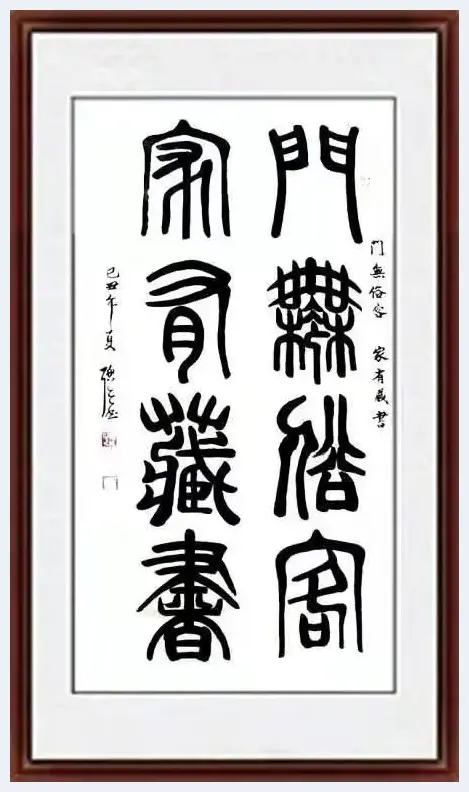 門無俗客 家有藏書
門無俗客
家有藏書
己丑年夏